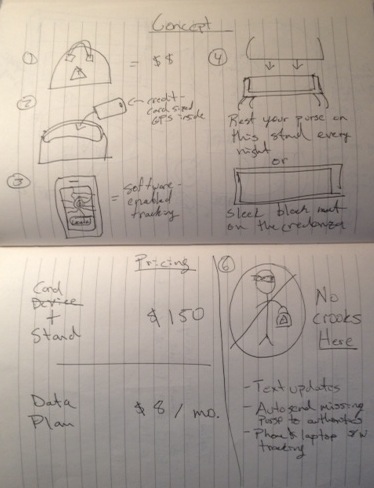 Concept
①
= $$
②
<- credit-
card sized
GPS inside
③
= Software-
enabled
tracking
④
Rest your purse on
this stand every
night
or
Sleek black mat
on the credenza
Pricing
Card
Device
+
Stand
$150
Data
Plan
$8 / mo.
⑥
No
crooks
Here
- Text updates
- Auto send missing
purse to authorities
- Phone & laptop
tracking